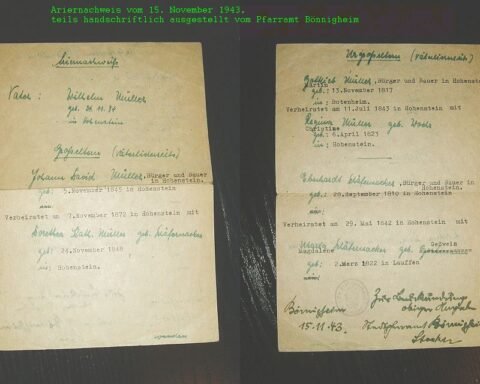 Ariernachweis vom 15. November 1943.
teils handschriftlich ausgestellt vom Pfarramt Bönnigheim
Ariernachweis
Vater: Wilhelm Müller
geb: 24.11.74
in Hohenstein
Großeltern (väterlicherseits)
Johann David Müller, Bürger und Bauer
in Hohenstein.
geb: 5.November 1845 in Hohenstein
Verheiratet am 7.November 1872 in Hohenstein mit
Dorothea Müller geb.
geb: 24.November 1848
in: Hohenstein.
Urgroßeltern (väterlicherseits)
Gottlieb Müller, Bürger und Bauer in Hohenstein
Martin
geb: 13.November 1817
in: Botenheim.
Verheiratet am 11.Juli 1843 in Hohenstein mit
Regina Müller geb.
Christine
geb: 6.April 1823
in: Hohenstein.
Bürger und Bauer in
Hohenstein.
geb: 20.September 1819 in Hohenstein
Verheiratet am 29. Mai 1842 in Hohenstein mit
Maria geb.
Magdalene
geb: 2.März 1822 in Lauffen
Bönnigheim
15.11.43.
Zur Beurkundung
obiger Angaben
Stadtpfarramt Bönnigheim
Stocker